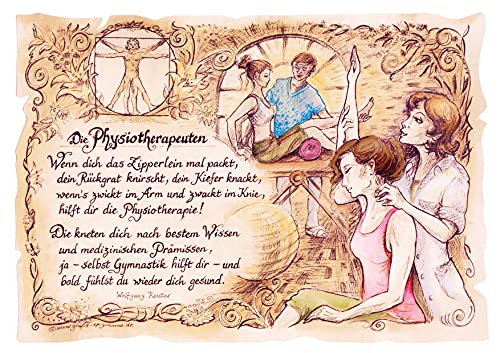 Die Physiotherapeuten
Wenn dich das Zipperlein mal packt,
dein Rückgrat knirscht, dein Kiefer knackt,
wenn's zwickt im Arm und zwackt im Knie,
hilft dir die Physiotherapie!
Die kneten dich nach bestem Wissen
und medizinischen Prämissen,
ja - selbst Gymnastik hilft dir - und
bald fühlst du wieder dich gesund.
Wolfgang Reuter